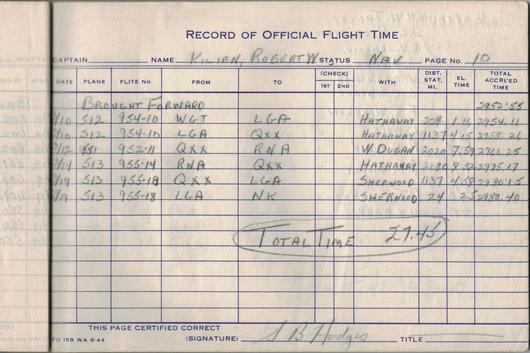 RECORD OF OFFICIAL FLIGHT TIME
CAPTAIN NAME KILIAN, ROBERT W STATUS NAV PAGE NO. 10
DATE PLANE FLITE NO. FROM TO (CHECK) 1ST 2ND WITH DIST. STAT. MI. EL. TIME TOTAL ACCR'LED TIME
BROUGHT FORWARD 2952:55
/10 512 954-10 WGT LGA HATHAWAY 224 1:16 2954:11
/10 512 954-10 LGA QXX HATHAWAY 1137 4:15 2958:26
/12 952-11 QXX RNA W. DUGAN 2020 7:59
/14 513 955-14 RNA QXX HATHAWAY 8:52 2975:17
/19 513 955-18 QXX LGA SHERWOOD 1137 4:58 2980:15
/19 513 955-18 LGA NK SHERWOOD 24 :25 2980:40
TOTAL TIME 27:45
THIS PAGE CERTIFIED CORRECT
(SIGNATURE) S B Hodges TITLE
FO 158 WA 8-44